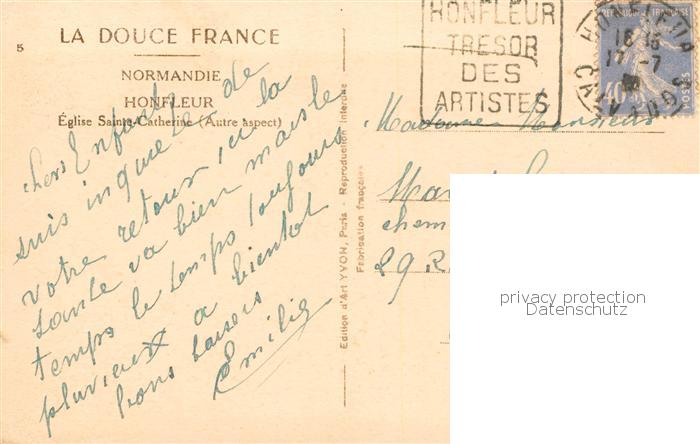 5
LA DOUCE FRANCE
NORMANDIE
HONFLEUR
Église Sainte-Catherine (Autre aspect)
chers Enfants
suis inquiete de
votre retour, ici la
sante va bien mais le
temps le temps toujours
pluvieux a bientot
bons baisers
Emilie
Edition d'Art YVON, Paris - Reproduction interdite
Fabrication française
HONFLEUR
TRESOR
DES
ARTISTES
HONFLEUR
18
17 -7
CALVADOS
REPUBLIQUE FRANÇAISE
40
POSTES
Madame Monsieur
Mar
chem
29 R
privacy protection
Datenschutz